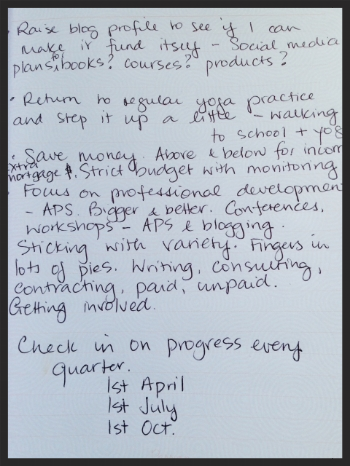 • Raise blog profile to see if I can
make it fund itself - Social media
plans? to books? courses? products?
• Return to regular yoga practice
and step it up a little - walking
to school + yog
• Save money. Above & below for incom
xtra mortgage $. Strict budget with monitoring
• Focus on professional developmen
- APS. Bigger & better. Conferences,
workshops - APS & blogging.
Sticking with variety. Fingers in
lots of pies. Writing, consulting,
contracting, paid, unpaid.
Getting involved.
Check in on progress every
quarter.
1st April
1st July
1st Oct.